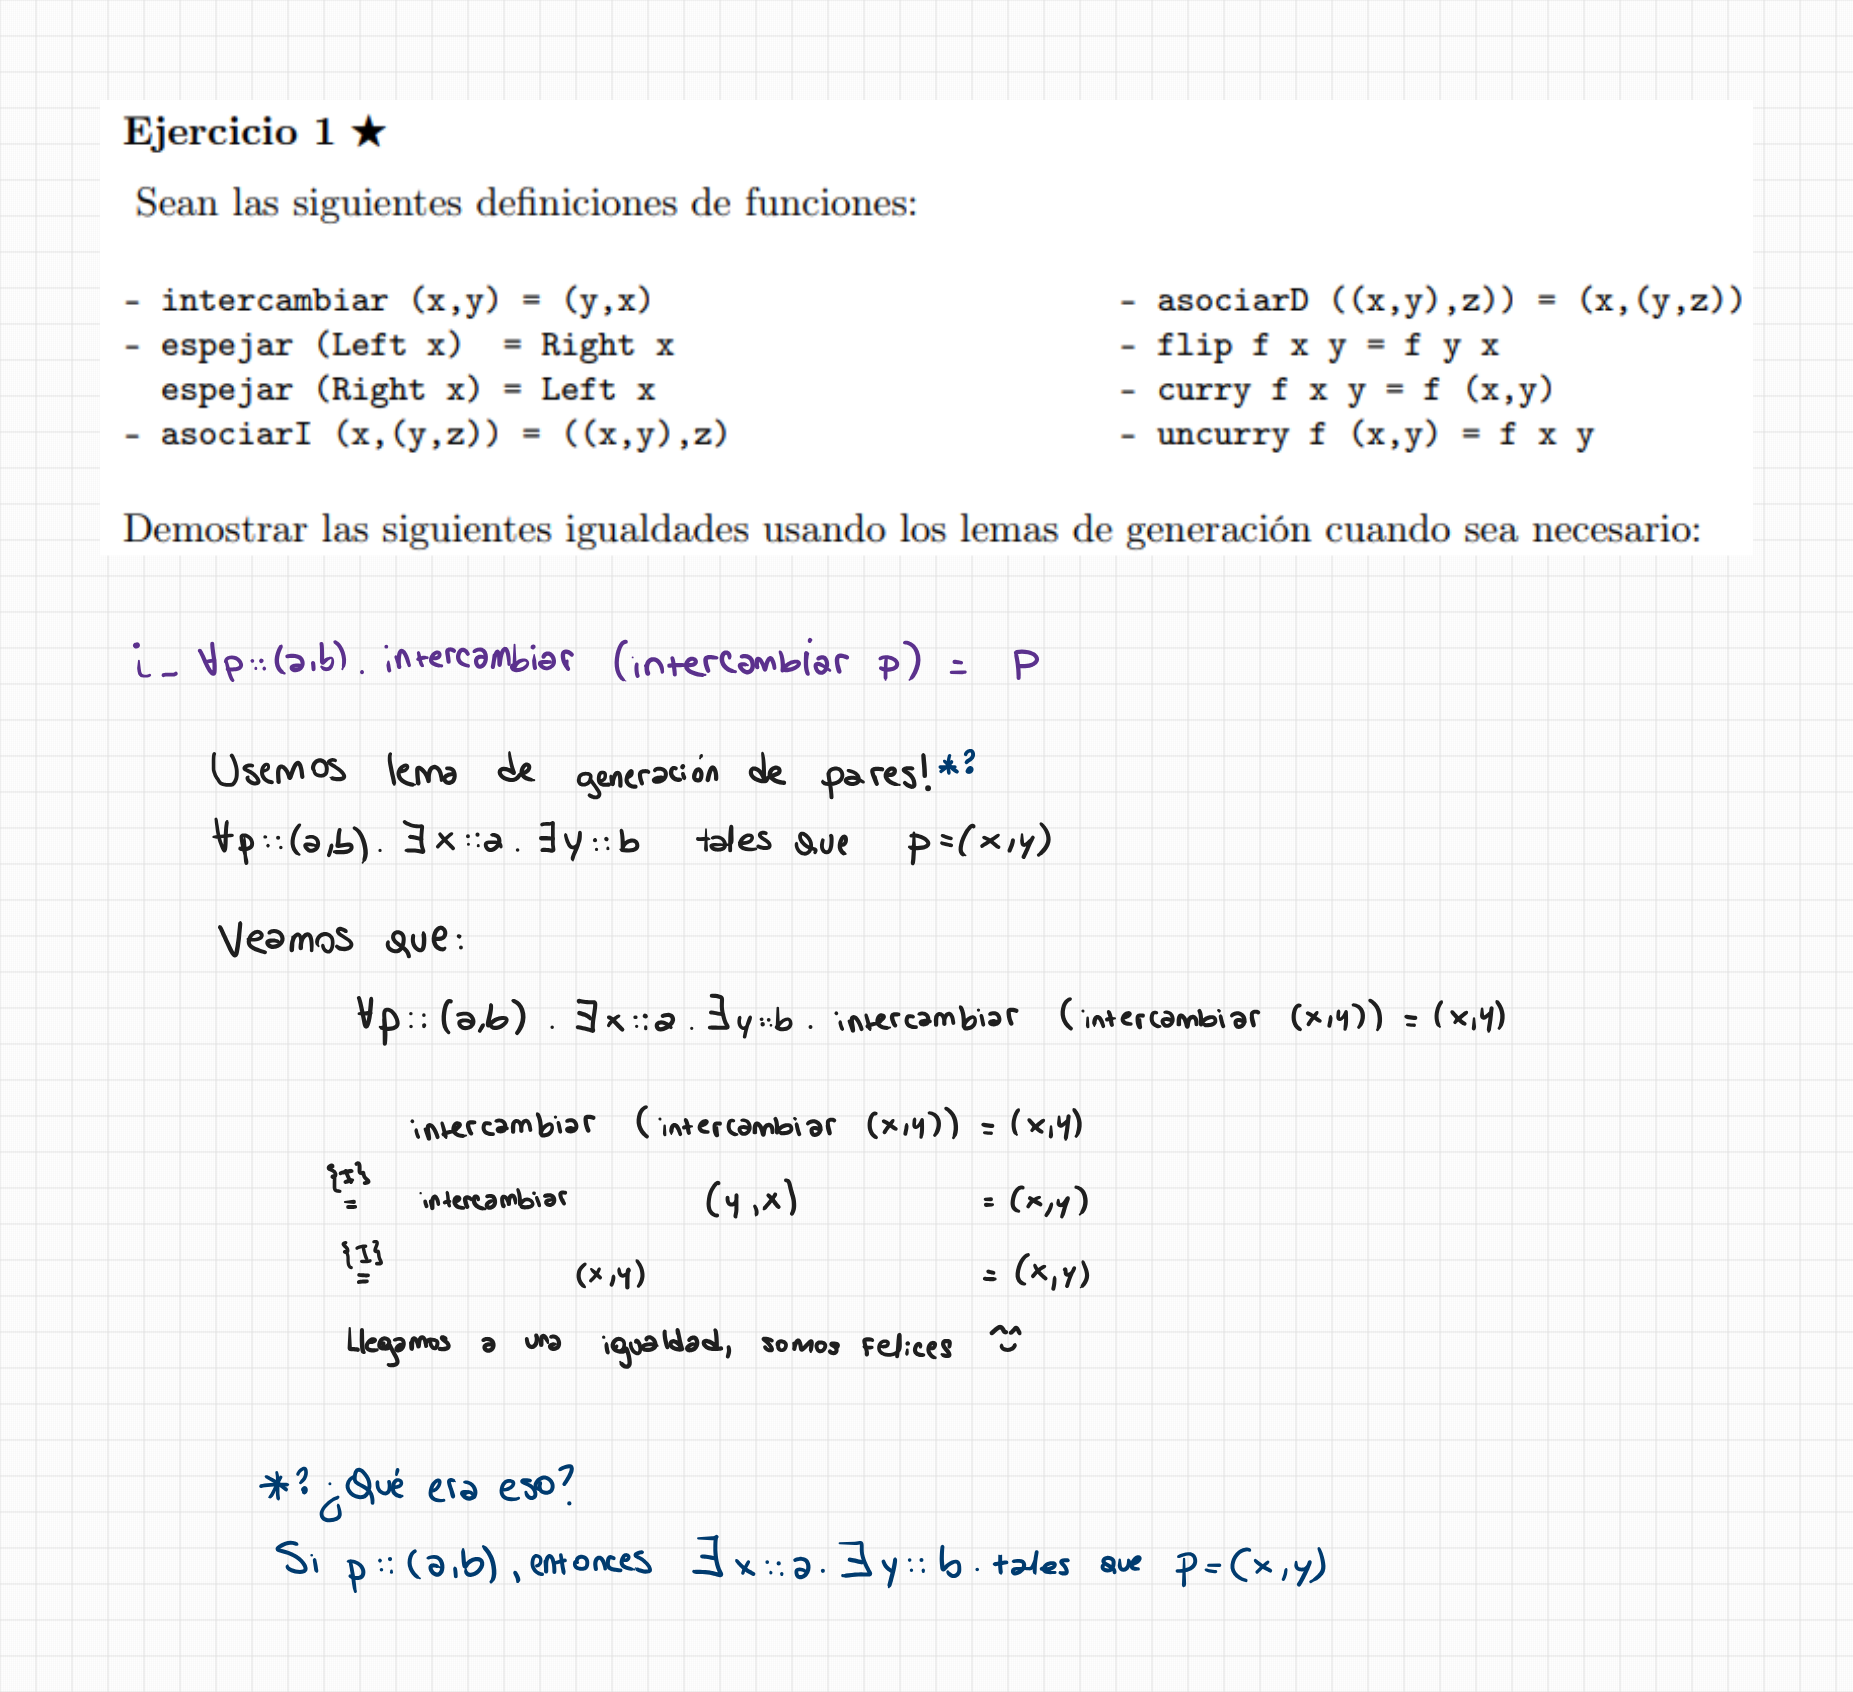 Ejercicio 1 ★
Sean las siguientes definiciones de funciones:
- intercambiar (x,y) = (y,x)
- espejar (Left x) = Right x
espejar (Right x) = Left x
- asociarI (x,(y,z)) = ((x,y),z)
- asociarD ((x,y),z)) = (x,(y,z))
- flip f x y = f y x
- curry f x y = f (x,y)
- uncurry f (x,y) = f x y
Demostrar las siguientes igualdades usando los lemas de generación cuando sea necesario:
i_ ∀p::(a,b). intercambiar (intercambiar p) = p
Usemos lema de generación de pares! *?
∀p::(a,b). ∃x::a. ∃y::b tales que p=(x,y)
Veamos que:
∀p::(a,b). ∃x::a. ∃y::b. intercambiar (intercambiar (x,y)) = (x,y)
intercambiar (intercambiar (x,y)) = (x,y)
{I}
= intercambiar (y,x) = (x,y)
{I}
= (x,y) = (x,y)
Llegamos a una igualdad, somos felices ^^
*? ¿Qué era eso?
Si p::(a,b), entonces ∃x::a. ∃y::b. tales que p=(x,y)